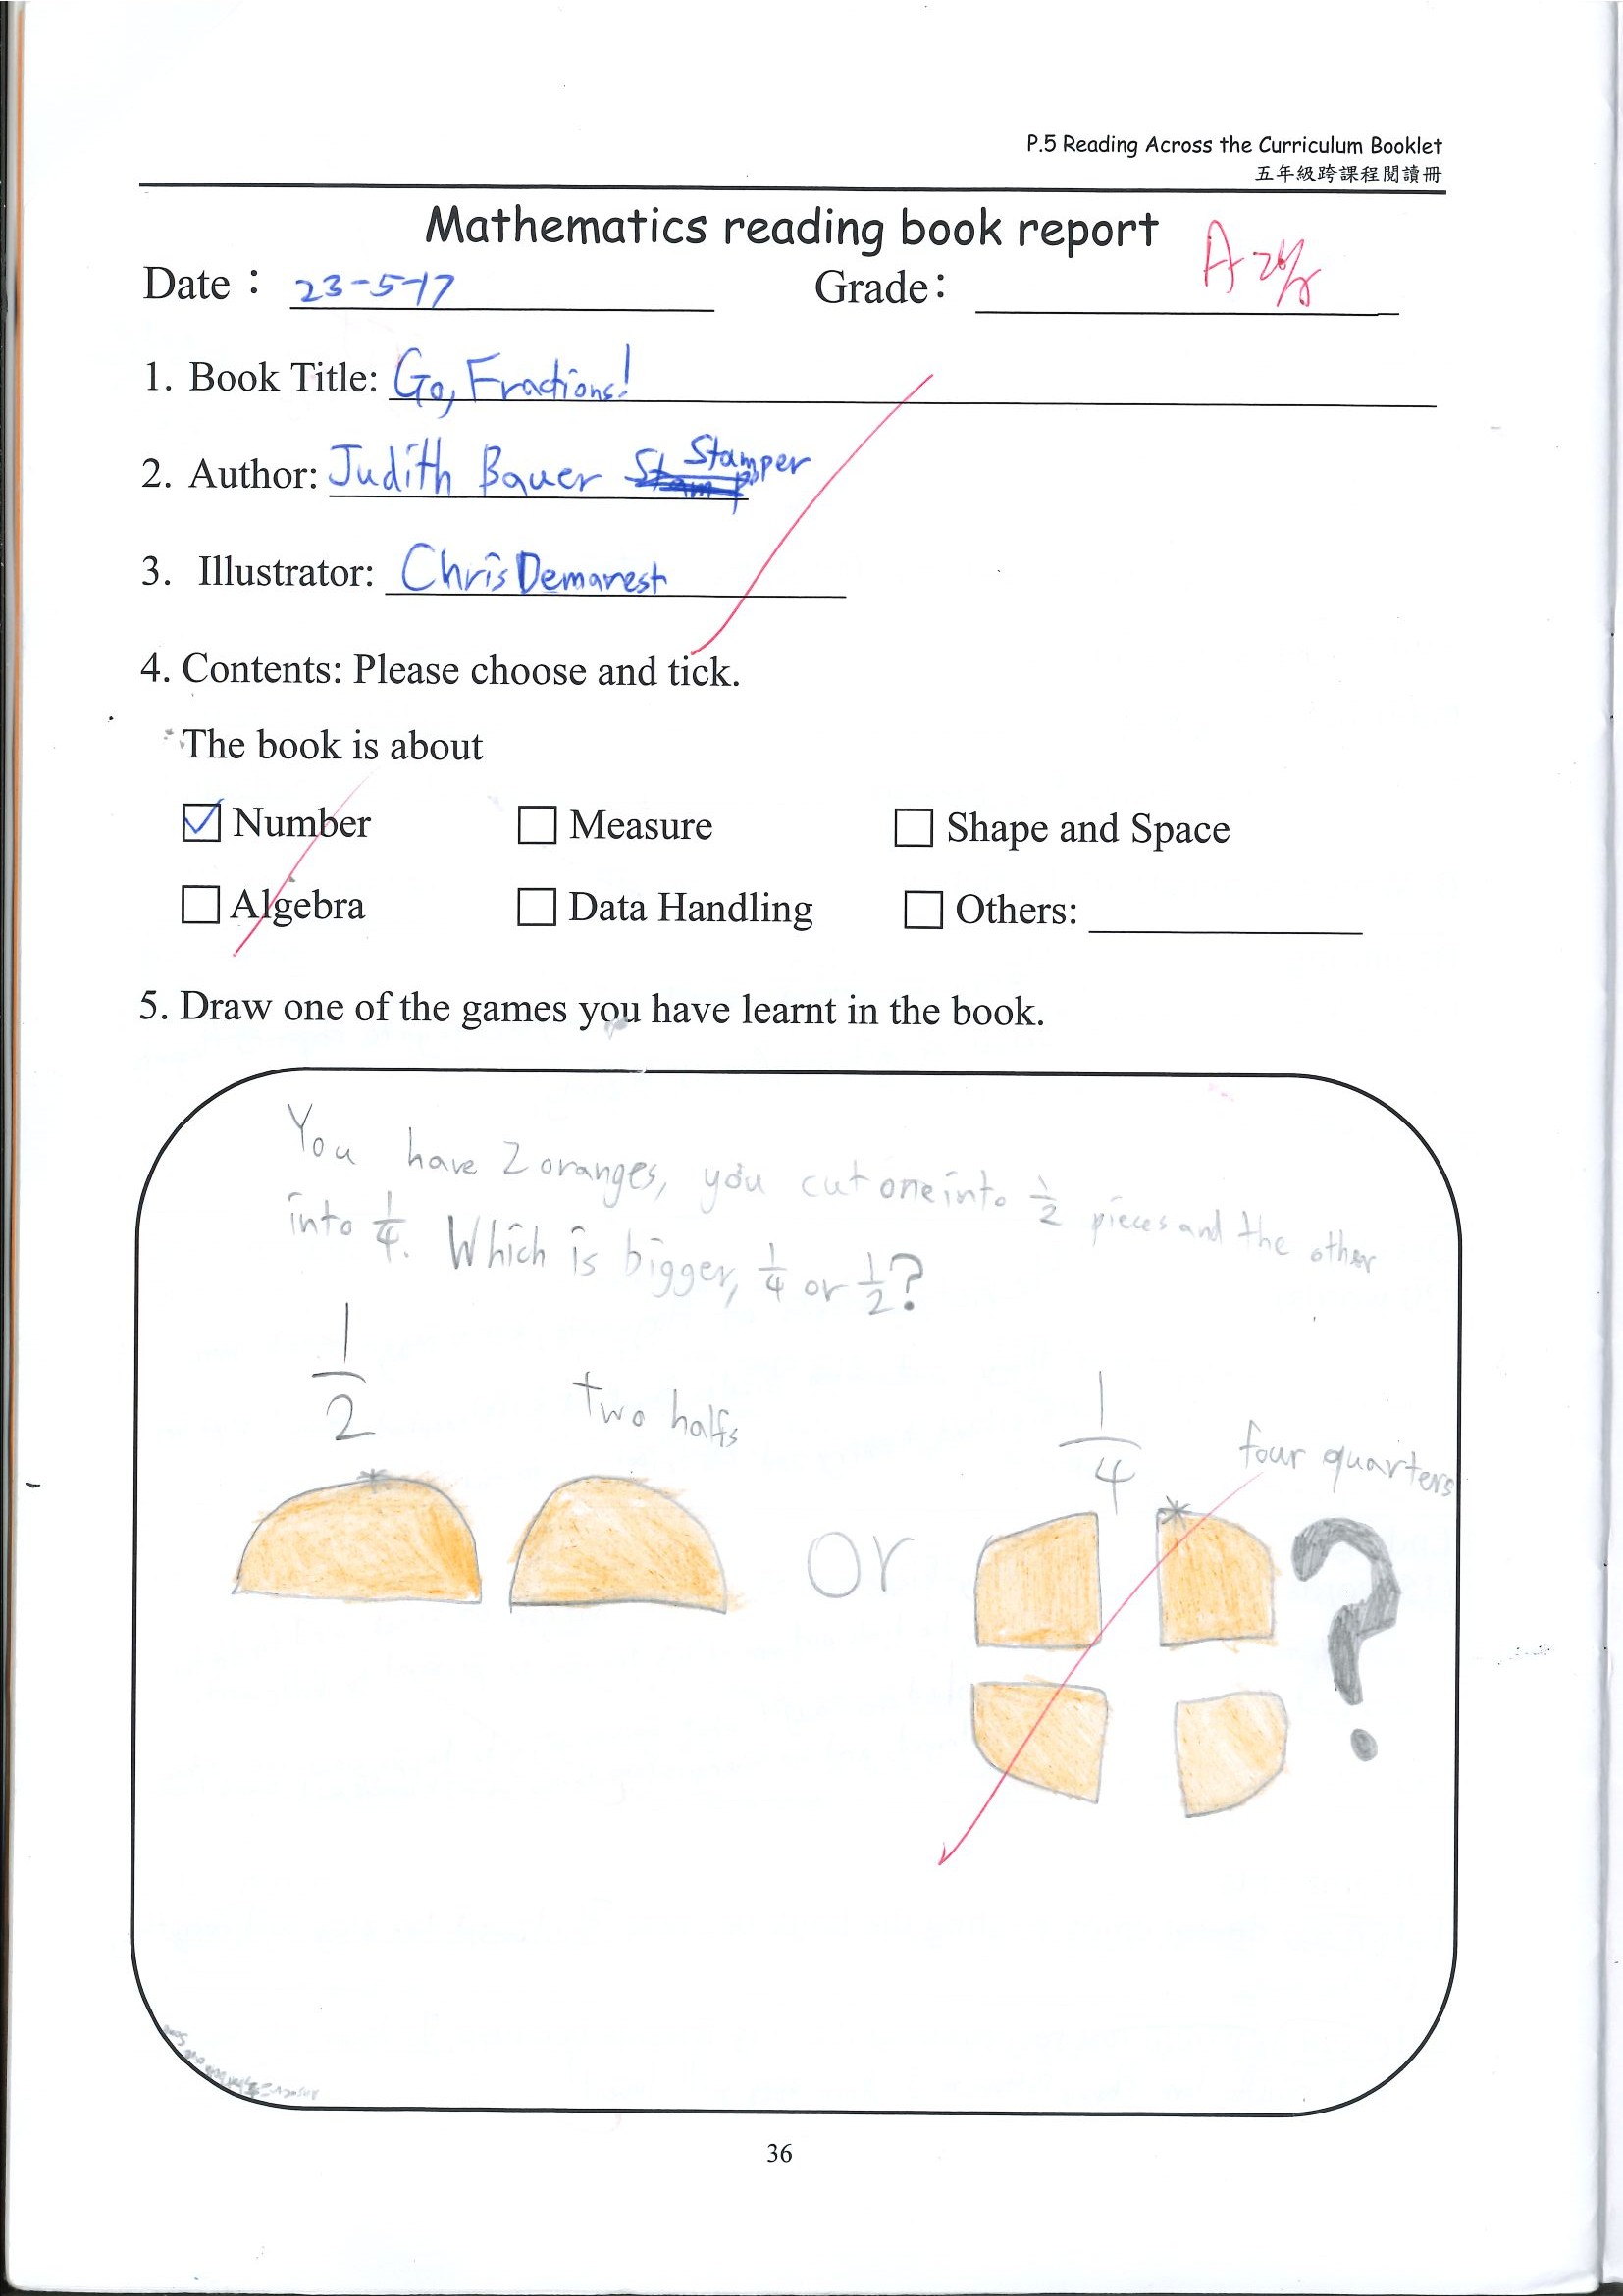 P.5 Reading Across the Curriculum Booklet
五年級跨課程閱讀冊
Mathematics reading book report
Date： 23-5-17 Grade： A 26/5
1. Book Title: Go, Fractions!
2. Author: Judith Bauer Stamper
3. Illustrator: Chris Demarest
4. Contents: Please choose and tick.
The book is about
☑ Number ☐ Measure ☐ Shape and Space
☐ Algebra ☐ Data Handling ☐ Others:
5. Draw one of the games you have learnt in the book.
You have 2 oranges, you cut one into 1/2 pieces and the other
into 1/4. Which is bigger, 1/4 or 1/2?
1/2 two halfs 1/4 four quarters
or ?
36